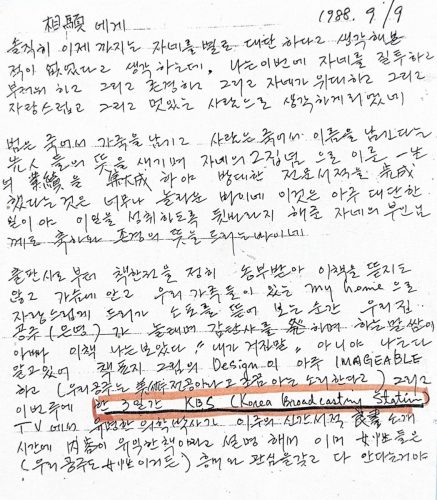 相顯 에게 1988. 9/9
솔직히 이제까지는 자네를 별로 대단하다고 생각해본
적이 없었다고 생각하는데, 나는 이번에 자네를 질투하고
부러워하고 그리고 존경하고 그리고 자네가 위대하고 그리고
자랑스럽고 그리고 멋있는 사람으로 생각하게 되었네
범은 죽어서 가죽을 남기고 사람은 죽어서 이름을 남긴다는
先人들의 뜻을 새기며 자네의 그 집념으로 이룬 一生
의 業績을 集大成 하야 방대한 전문서적을 集成
했다는 것은 너무나 놀라운 바이에 이것은 아주 대단한
일이야 이일을 성취하도록 뒷바라지 해준 자네의 부인님
께도 축하와 존경의 뜻을 드리는 바이네
출판사로부터 책한권을 정히 송부받아 이책을 뜯지도
않고 가슴에 안고 우리 가족들이 있는 my home 으로
자랑스럽게 드리가 소포를 뜯어 보는 순간 우리집
공주(은영)가 놀래며 감탄사를 發하며 하는 말씀이
아빠 이책 나는 보았다 "내가 거짓말" 아니야 나는 다
알고있어 책표지 그림의 Design 이 아주 IMAGEABLE
하고 (우리공주는 美術전공이라고 조끔 아는 소리한다고) 그리고
이번주에 한 3일간 KBS (Korea Broadcasting Station)
TV에서 유명한 의학박사가 이주의 신간서적 良書 소개
시간에 内容이 유익한 책이라고 설명하며 이며 女性들은
(우리공주도 女性이거든) 흥미와 관심을 갖고 다 안다는거야